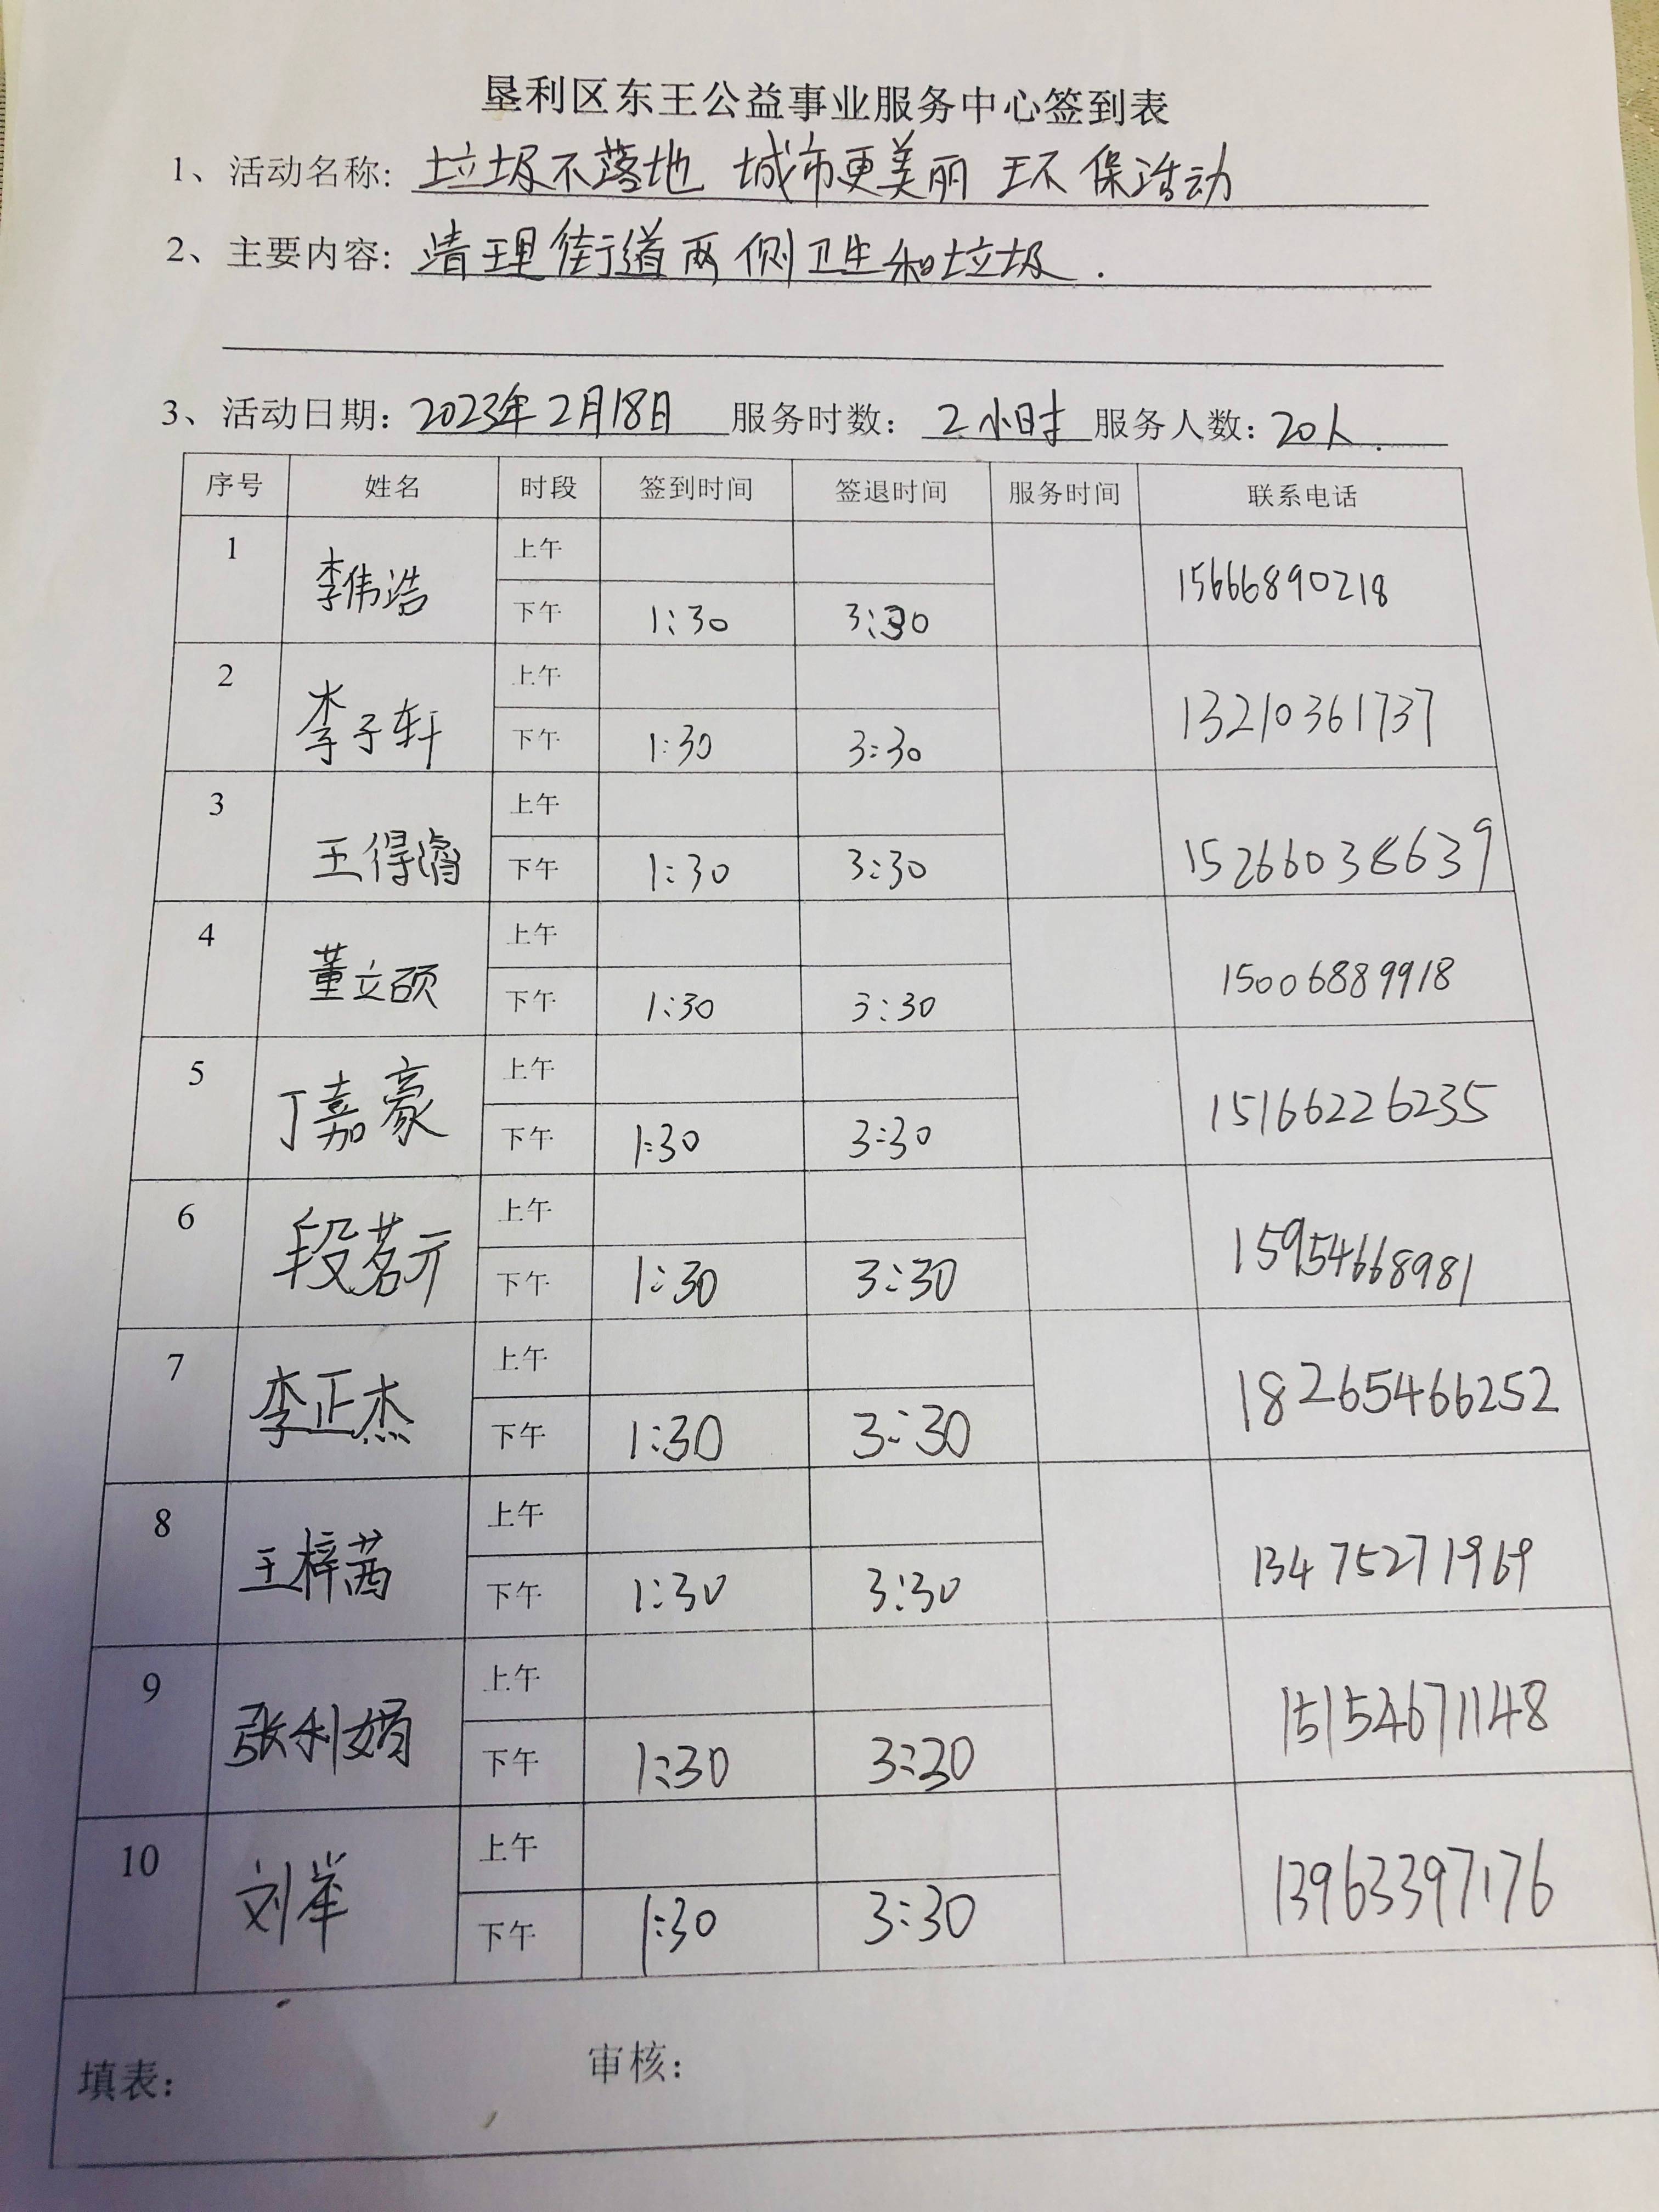 垦利区东王公益事业服务中心签到表
1、活动名称: 垃圾不落地 城市更美丽 环保活动
2、主要内容: 清理街道两侧卫生和垃圾.
3、活动日期: 2023年2月18日 服务时数: 2小时 服务人数: 20人.
序号 姓名 时段 签到时间 签退时间 服务时间 联系电话
1 李伟浩 上午 15666890218
下午 1:30 3:30
2 李子轩 上午 13210361737
下午 1:30 3:30
3 王得 上午 15266038639
下午 1:30 3:30
4 董立硕 上午 15006889918
下午 1:30 3:30
5 丁嘉豪 上午 15166226235
下午 1:30 3:30
6 段茗元 上午 15954668981
下午 1:30 3:30
7 李正杰 上午 18265466252
下午 1:30 3:30
8 王梓茜 上午 13475271969
下午 1:30 3:30
9 张利娟 上午 15154671148
下午 1:30 3:30
10 刘 上午 13963397176
下午 1:30 3:30
填表: 审核: